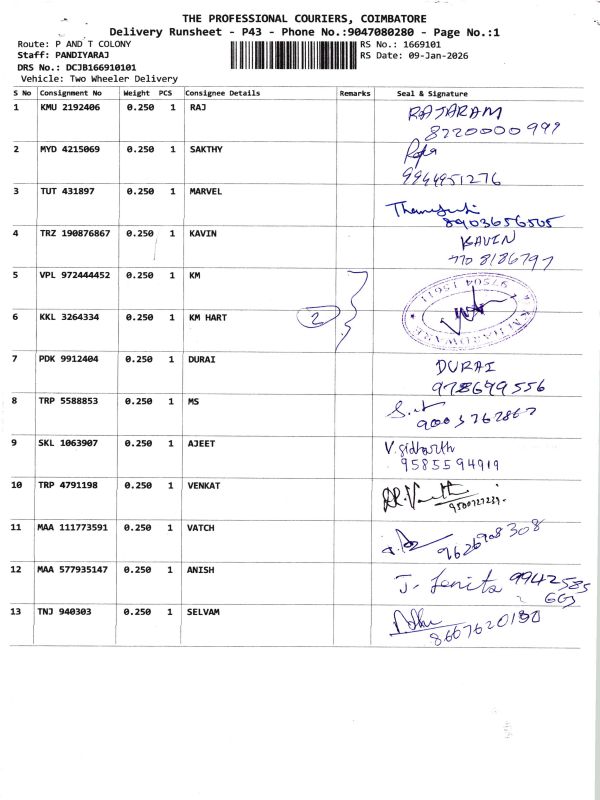 THE PROFESSIONAL COURIERS, COIMBATORE
Delivery Runsheet - P43 - Phone No.:9047080280 - Page No.:1
Route: P AND T COLONY
RS No.: 1669101
Staff: PANDIYARAJ
RS Date: 09-Jan-2026
DRS No.: DCJB166910101
Vehicle: Two Wheeler Delivery
S No Consignment No Weight PCS Consignee Details Remarks Seal & Signature
1 KMU 2192406 0.250 1 RAJ RAJARAM
8220000999
2 MYD 4215069 0.250 1 SAKTHY
9944951276
3 TUT 431897 0.250 1 MARVEL
8903656505
4 TRZ 190876867 0.250 1 KAVIN KAVIN
7708186797
5 VPL 972444452 0.250 1 KM
97504 15611
6 KKL 3264334 0.250 1 KM HART 2
K.M.HARDWARE
7 PDK 9912404 0.250 1 DURAI DURAI
978699556
8 TRP 5588853 0.250 1 MS
9 SKL 1063907 0.250 1 AJEET V. Sidharth
9585594919
10 TRP 4791198 0.250 1 VENKAT
11 MAA 111773591 0.250 1 VATCH
9626908308
12 MAA 577935147 0.250 1 ANISH J. Jenita 9942585
663
13 TNJ 940303 0.250 1 SELVAM